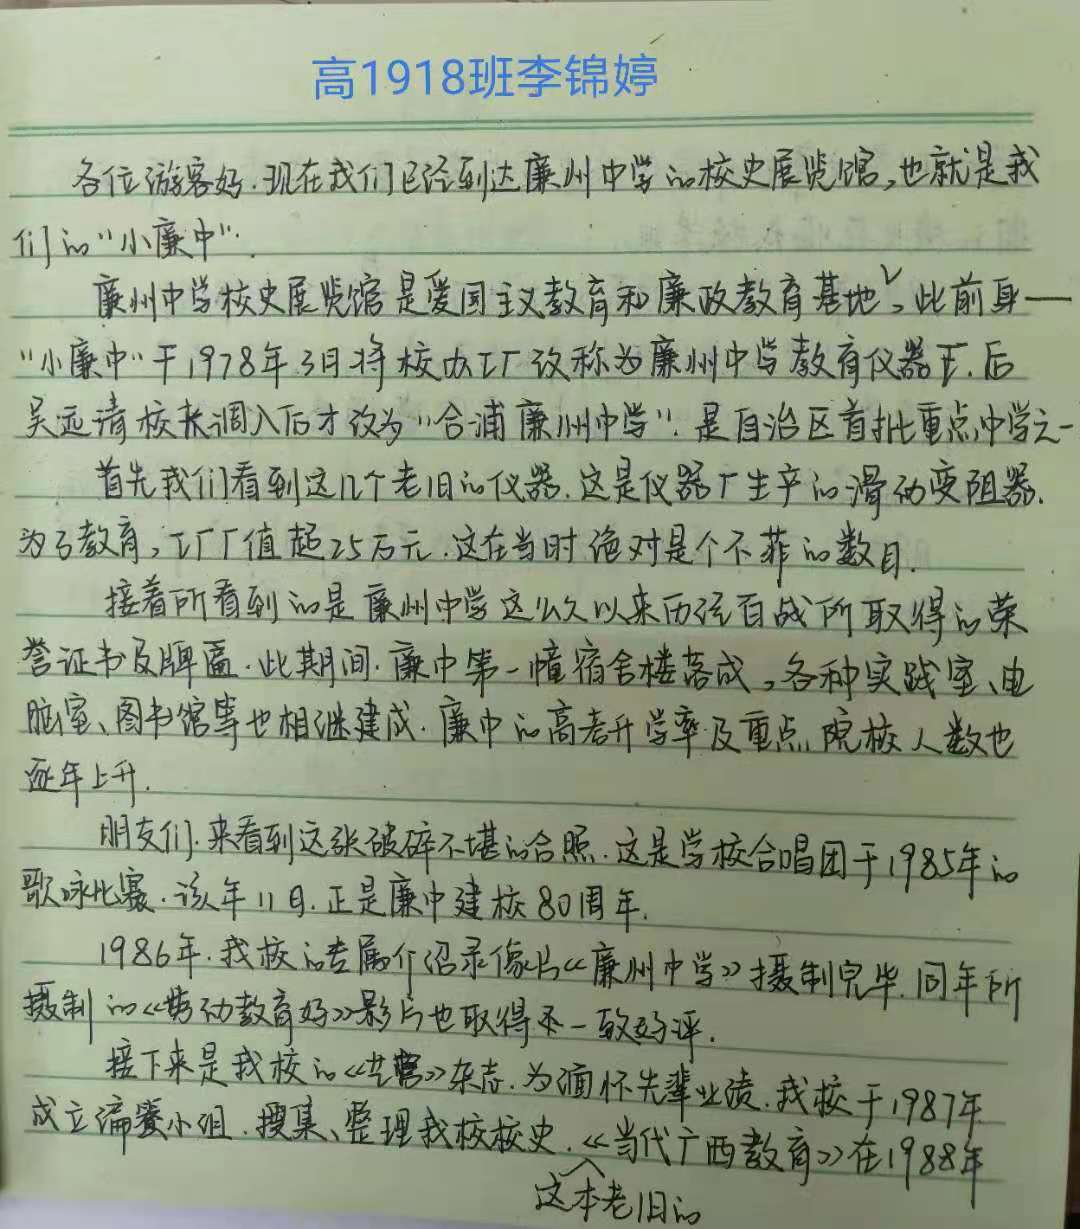 高1918班李锦婷
各位游客好.现在我们已经到达廉州中学的校史展览馆,也就是我
们的"小廉中".
廉州中学校史展览馆是爱国主义教育和廉政教育基地,此前身——
"小廉中"于1978年3月将校办工厂改称为廉州中学教育仪器厂.后
吴远清校长调入后才改为"合浦廉州中学".是自治区首批重点中学之一
首先我们看到这几个老旧的仪器.这是仪器厂生产的滑动变阻器.
为了教育,工厂厂值超25万元.这在当时绝对是个不菲的数目.
接着所看到的是廉州中学这么久以来历经百战所取得的荣
誉证书及牌匾.此期间.廉中第一幢宿舍楼落成,各种实践室、电
脑室、图书馆等也相继建成.廉中的高考升学率及重点院校人数也
逐年上升.
朋友们.来看到这张破碎不堪的合照.这是学校合唱团于1985年的
歌咏比赛.该年11月.正是廉中建校80周年.
1986年.我校的专属介绍录像片《廉州中学》摄制完毕.同年所
摄制的《劳动教育好》影片也取得一致好评.
接下来是我校的《》杂志.为缅怀先辈业绩.我校于1987年
成立编纂小组.搜集、整理我校校史.《当代广西教育》在1988年
这本老旧的